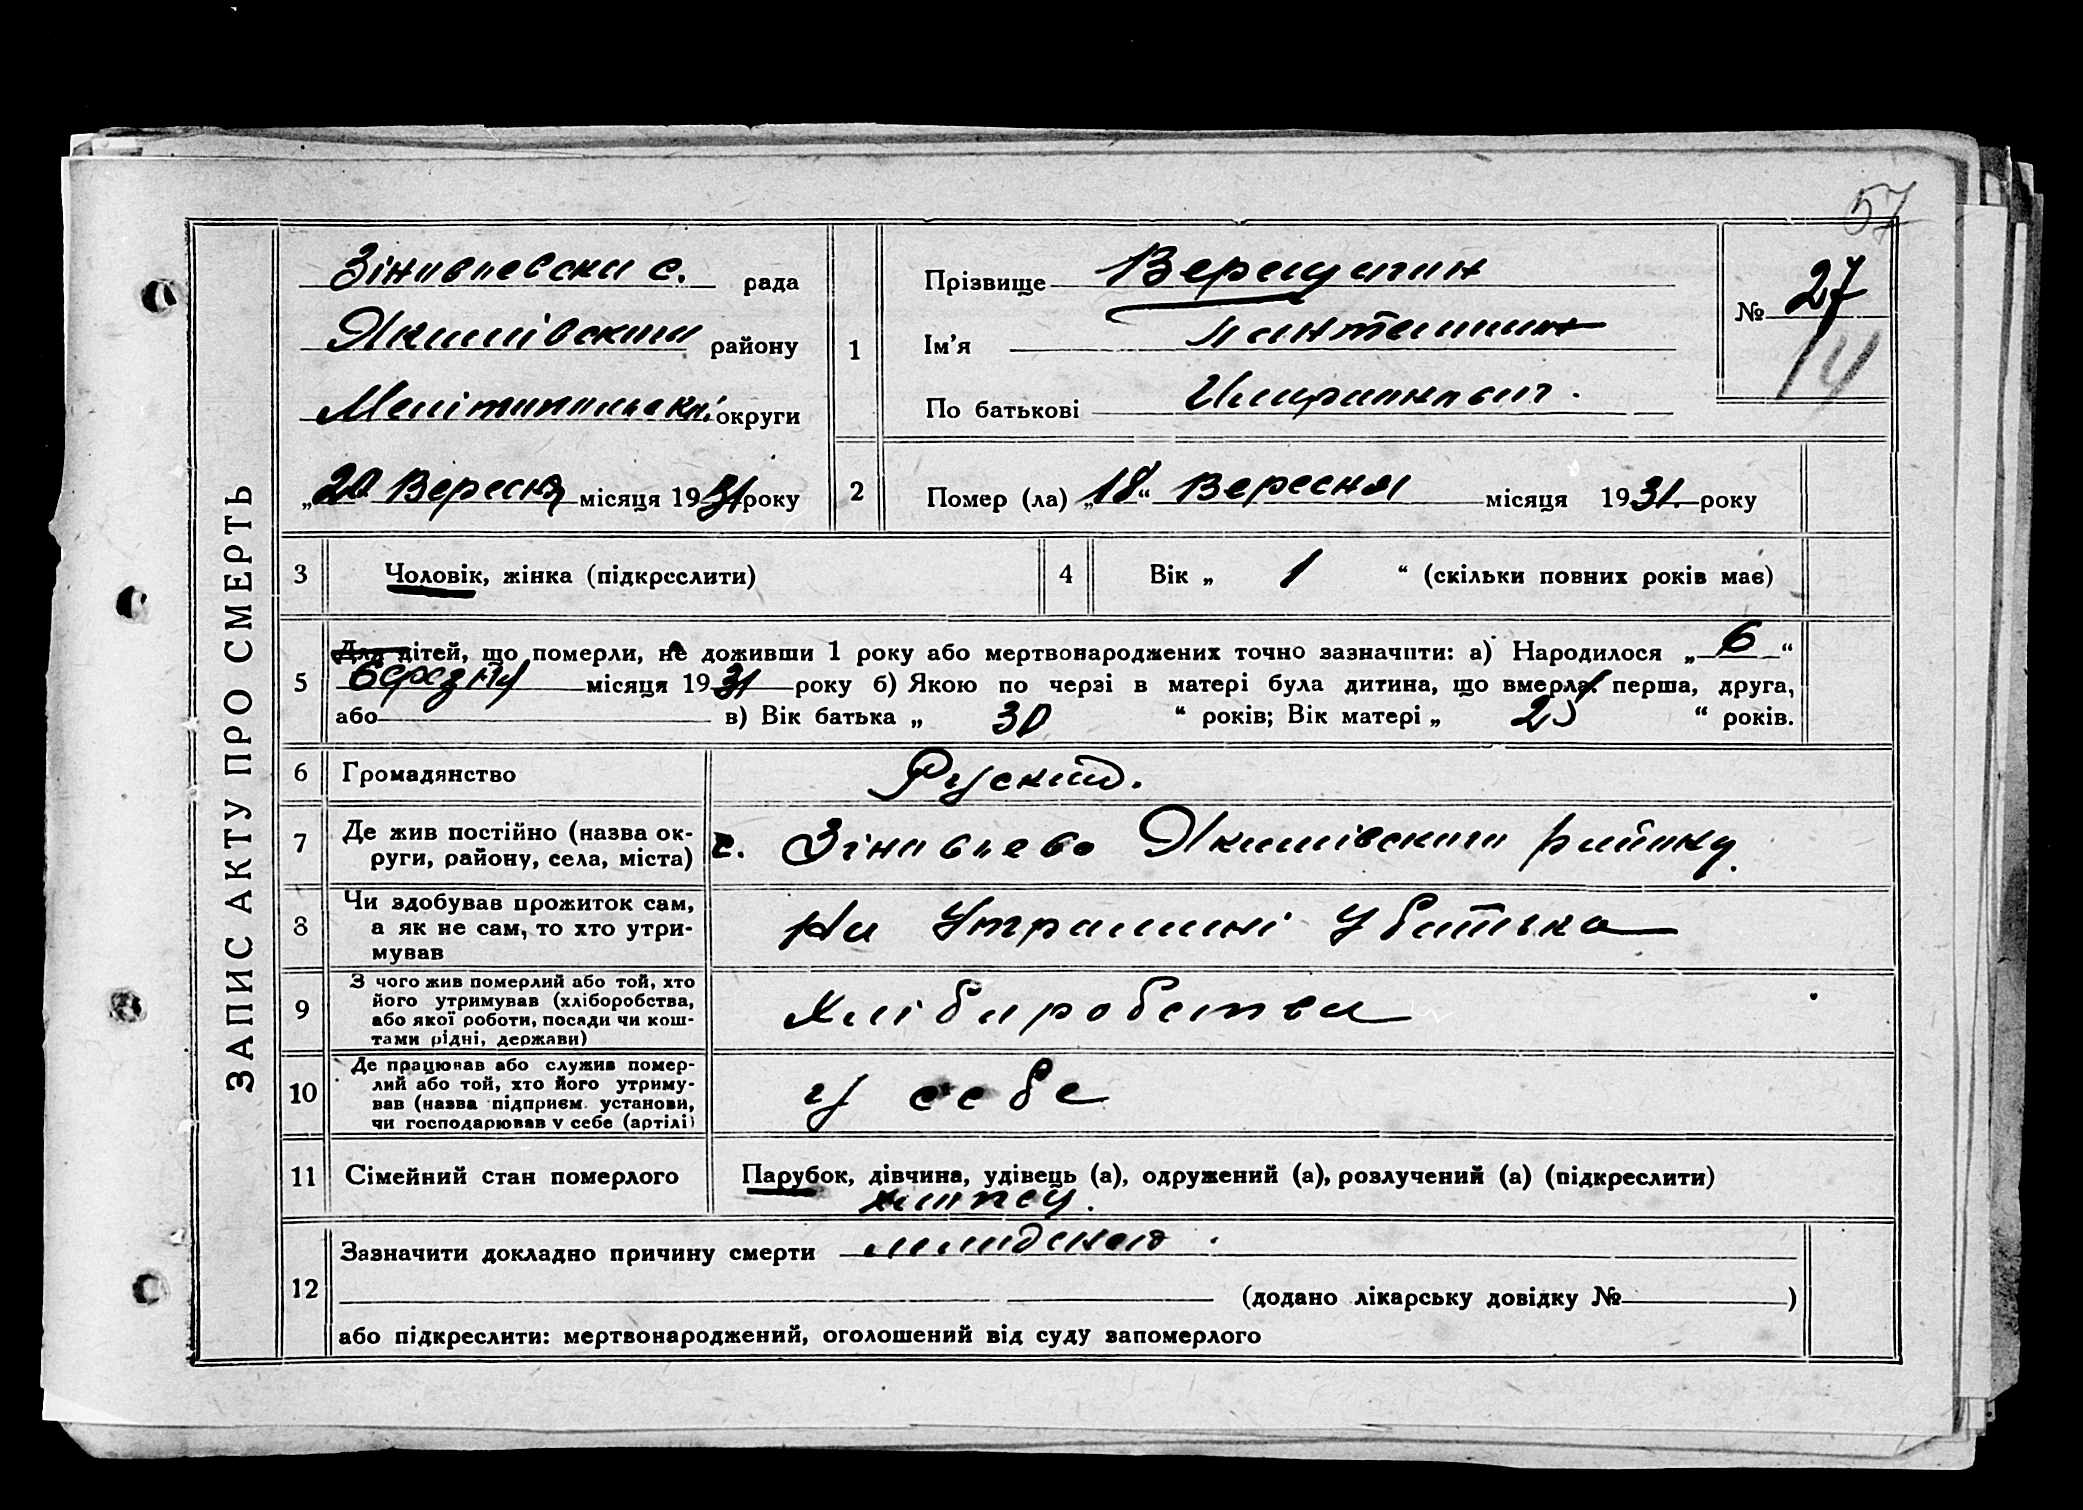 57
ЗАПИС АКТУ ПРО СМЕРТЬ
Зіновьевска с. рада
Якимівского району
Мелітопольськ. округи
„20 Вересня місяця 1931 року
1
Прізвище Верещагин
Ім'я
По батькові
№ 27
14
2
Помер (ла) „18“ Вересня місяця 1931. року
3
Чоловік, жінка (підкреслити)
4
Вік „ 1 “ (скільки повних років має)
5
Для дітей, що померли, не доживши 1 року або мертвонароджених точно зазначити: а) Народилося „ 6 “
березня місяця 1931 року б) Якою по черзі в матері була дитина, що вмерла: перша, друга,
або в) Вік батька „ 30 “ років; Вік матері „ 25 “ років.
6
Громадянство
Руский.
7
Де жив постійно (назва округи, району, села, міста)
с. Зіновьево Якимівского району.
8
Чи здобував прожиток сам,
а як не сам, то хто утри-
мував
На Утриманні У батька
9
З чого жив померлий або той, хто
його утримував (хліборобства,
або якої роботи, посади чи кош-
тами рідні, держави)
Хліборобства
10
Де працював або служив помер-
лий або той, хто його утриму-
вав (назва підприєм. установи,
чи господарював у себе (артілі)
у себе
11
Сімейний стан померлого
Парубок, дівчина, удівець (а), одружений (а), розлучений (а) (підкреслити)
12
Зазначити докладно причину смерти
(додано лікарську довідку № )
або підкреслити: мертвонароджений, оголошений від суду запомерлого